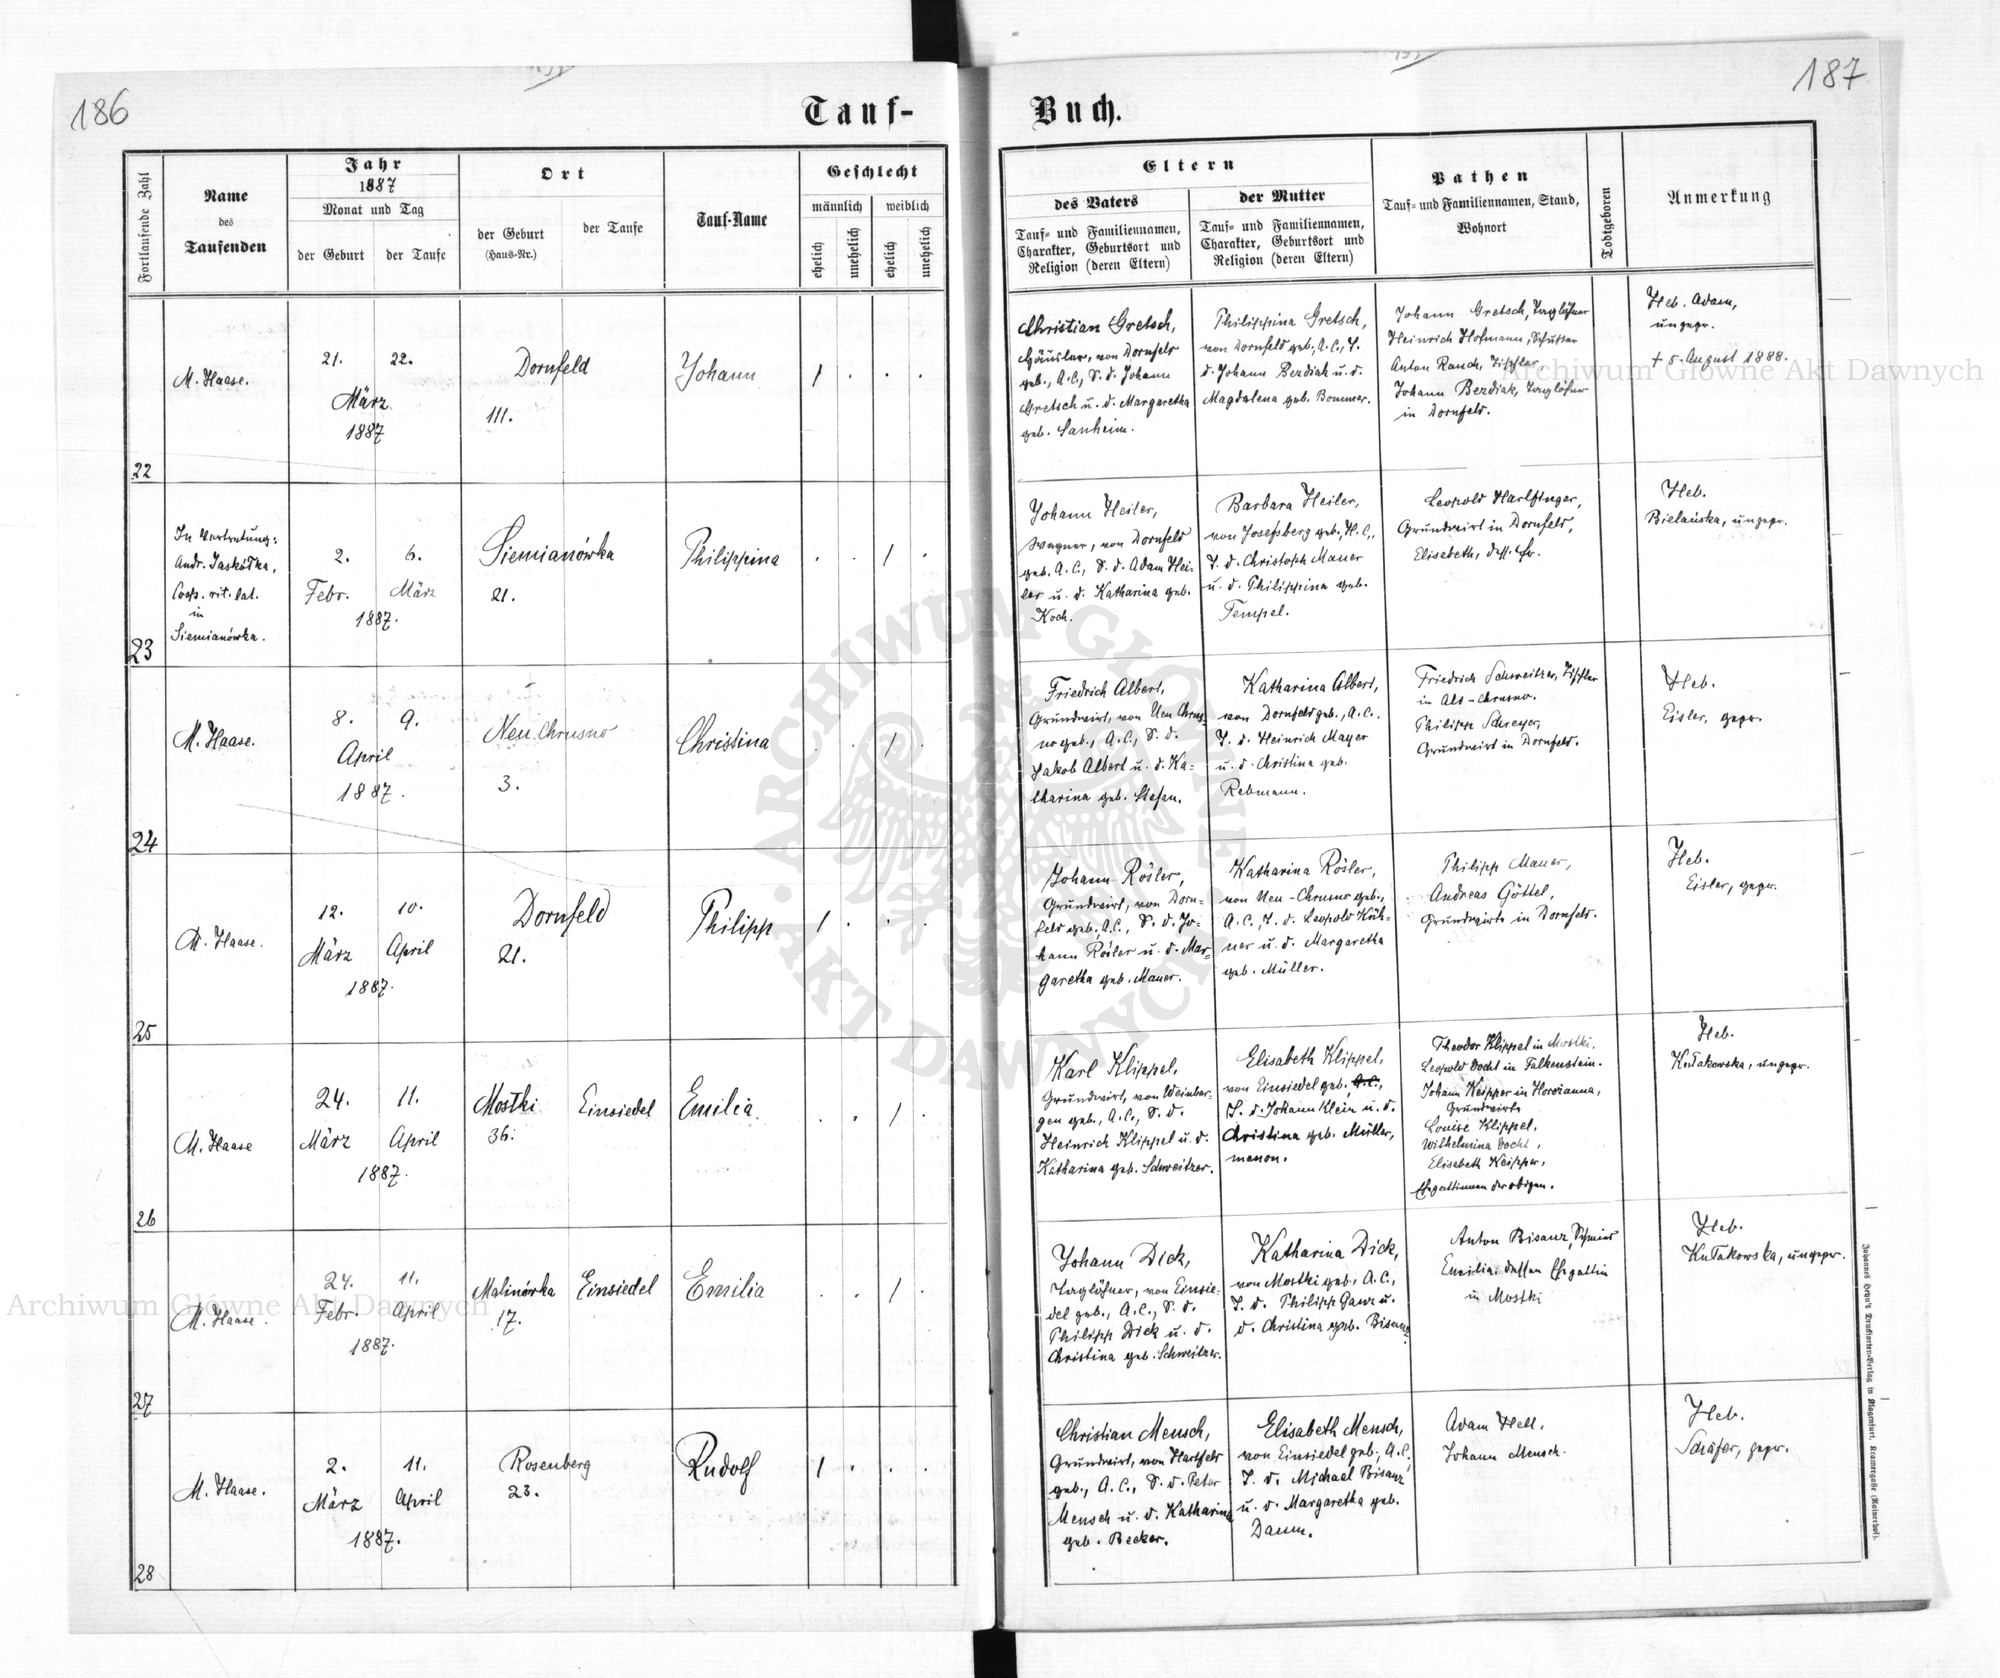 186
187
Tauf-
Buch.
Fortlaufende Zahl
Name
des
Taufenden
Jahr
1887
Monat und Tag
der Geburt
der Taufe
Ort
der Geburt
(Haus-Nr.)
der Taufe
Tauf-Name
Geschlecht
männlich
weiblich
ehelich
unehelich
ehelich
unehelich
Eltern
des Vaters
Tauf- und Familiennamen,
Charakter, Geburtsort und
Religion (deren Eltern)
der Mutter
Tauf- und Familiennamen,
Charakter, Geburtsort und
Religion (deren Eltern)
Pathen
Tauf- und Familiennamen, Stand,
Wohnort
Todtgeboren
Anmerkung
22
M. Haase.
21. 22.
März
1887
Dornfeld
111.
Johann
1 . . .
Christian Gretsch,
Häusler, von Dornfeld
geb., A.C., S. d. Johann
Gretsch u. d. Margaretha
geb. Sanheim.
Philippina Gretsch,
von Dornfeld geb., A.C., T.
d. Johann Bezdiak u. d.
Magdalena geb. Bommer.
Johann Gretsch, Taglöhner
Heinrich Hofmann, Schuster
Anton Rauch, Tischler
Johann Bezdiak, Taglöhner
in Dornfeld.
Heb. Adam,
ungepr.
† 5. August 1888.
23
In Vertretung:
Andr. Jaskółka,
Coop. rit. lat.
in
Siemianówka.
2. 6.
Febr. März
1887.
Siemianówka
21.
Philippina
. . 1 .
Johann Heiler,
Wagner, von Dornfeld
geb. A.C., S. d. Adam Hei-
ler u. d. Katharina geb.
Koch.
Barbara Heiler,
von Josefsberg geb., H.C.,
T. d. Christoph Mauer
u. d. Philippina geb.
Tempel.
Leopold Harlfinger,
Grundwirt in Dornfeld,
Elisabeth, dess. Fr.
Heb.
Bielańska, ungepr.
24
M. Haase.
8. 9.
April
1887.
Neu Chrusno
3.
Christina
. . 1 .
Friedrich Albert,
Grundwirt, von Neu Chrus-
no geb., A.C., S. d.
Jakob Albert u. d. Ka-
tharina geb. Stefan.
Katharina Albert,
von Dornfeld geb., A.C.,
T. d. Heinrich Mayer
u. d. Christina geb.
Rebmann.
Friedrich Schweitzer, Tischler
in Alt-Chrusno.
Philipp Schreyer,
Grundwirt in Dornfeld.
Heb.
Eisler, gepr.
25
M. Haase.
12. 10.
März April
1887.
Dornfeld
21.
Philipp
1 . . .
Johann Rösler,
Grundwirt, von Dorn-
feld geb., A.C., S. d. Jo-
hann Rösler u. d. Mar-
garetha geb. Mauer.
Katharina Rösler,
von Neu-Chrusno geb.,
A.C., T. d. Leopold Küh-
ner u. d. Margaretha
geb. Müller.
Philipp Mauer,
Andreas Göttel,
Grundwirte in Dornfeld.
Heb.
Eisler, gepr.
26
M. Haase
24. 11.
März April
1887.
Mostki
36.
Einsiedel
Emilia
. . 1 .
Karl Klippel,
Grundwirt, von Weinber-
gen geb., A.C., S. d.
Heinrich Klippel u. d.
Katharina geb. Schweitzer.
Elisabeth Klippel,
von Einsiedel geb., A.C.,
T. d. Johann Klein u. d.
Christina geb. Müller,
menon.
Theodor Klippel in Mostki.
Leopold Docht in Falkenstein.
Johann Keipper in Horożanna,
Grundwirte
Louise Klippel,
Wilhelmina Docht,
Elisabeth Keipper,
Ehegattinnen der obigen.
Heb.
Kułakowska, ungepr.
27
M. Haase.
24. 11.
Febr. April
1887.
Malinówka
17.
Einsiedel
Emilia
. . 1 .
Johann Dick,
Taglöhner, von Einsie-
del geb., A.C., S. d.
Philipp Dick u. d.
Christina geb. Schweitzer.
Katharina Dick,
von Mostki geb., A.C.,
T. d. Philipp Ganz u.
d. Christina geb. Bisanz.
Anton Bisanz, Schmied
Emilia, dessen Ehegattin
in Mostki
Heb.
Kułakowska, ungepr.
28
M. Haase.
2. 11.
März April
1887.
Rosenberg
23.
Rudolf
1 . . .
Christian Mensch,
Grundwirt, von Hartfeld
geb., A.C., S. d. Peter
Mensch u. d. Katharina
geb. Becker.
Elisabeth Mensch,
von Einsiedel geb., A.C.,
T. d. Michael Bisanz
u. d. Margaretha geb.
Daum.
Adam Hell.
Johann Mensch.
Heb.
Schäfer, gepr.
Johannes Heyn's Drucksorten-Verlag in Klagenfurt, Kramergasse (Rainerhof).
Archiwum Główne Akt Dawnych
Archiwum Główne Akt Dawnych
ARCHIWUM GŁÓWNE
AKT DAWNYCH